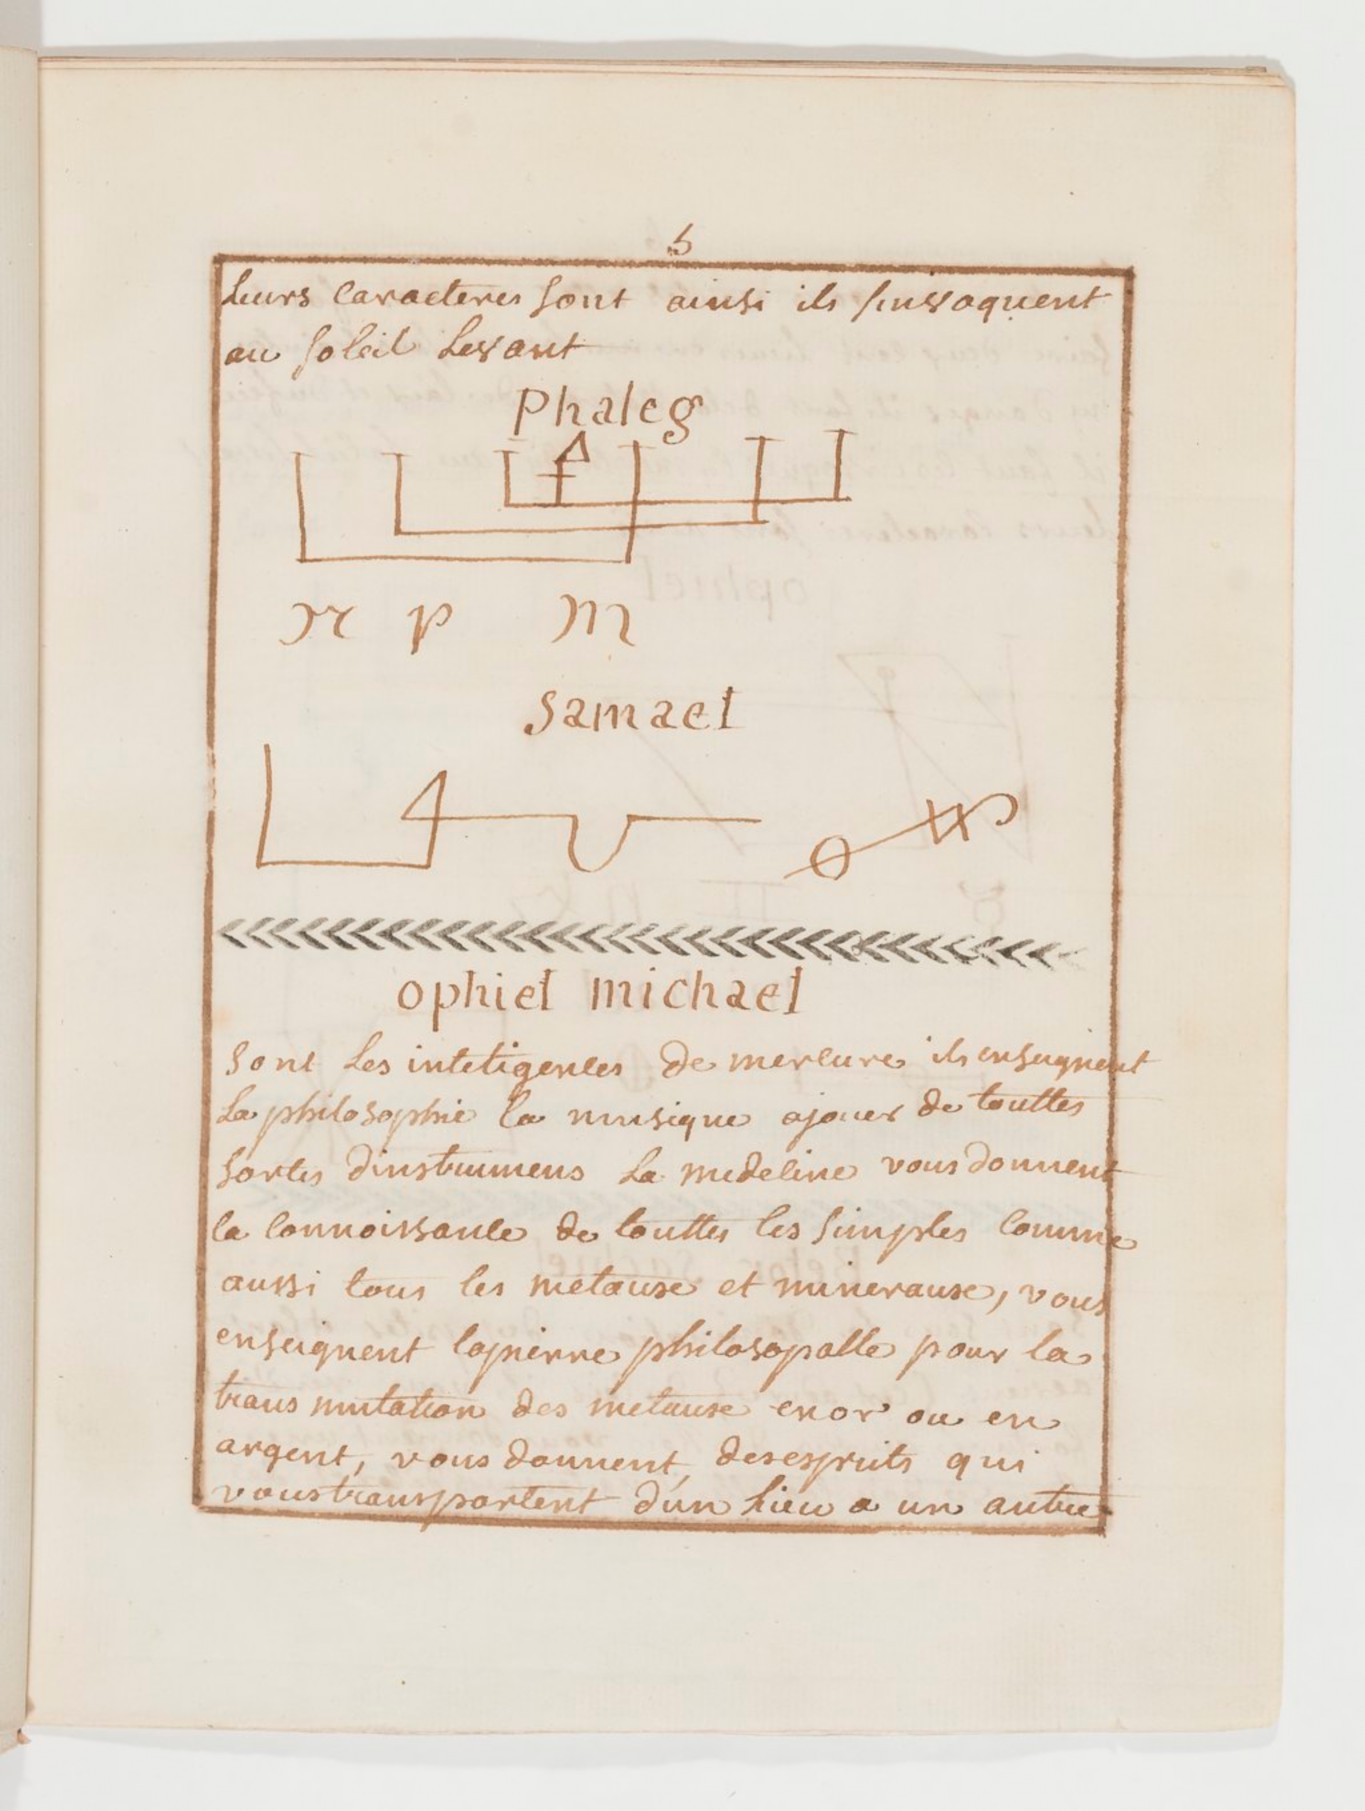 5
Leurs caracteres sont ainsi ils sinvoquent
au soleil Levant
Phaleg
n p m
samael
ophiel michael
sont Les inteligences de mercure ils enseignent
La philosophie la musique ajouer de touttes
sortes dinstrumens La medecine vous donnent
la connoissance de touttes les simples comme
aussi tous les metause et minerause, vous
enseignent lapierre philosopalle pour la
trans mutation des metause enor ou en
argent, vous donnent, desesprits qui
voustransportent d'un Lieu a un autre